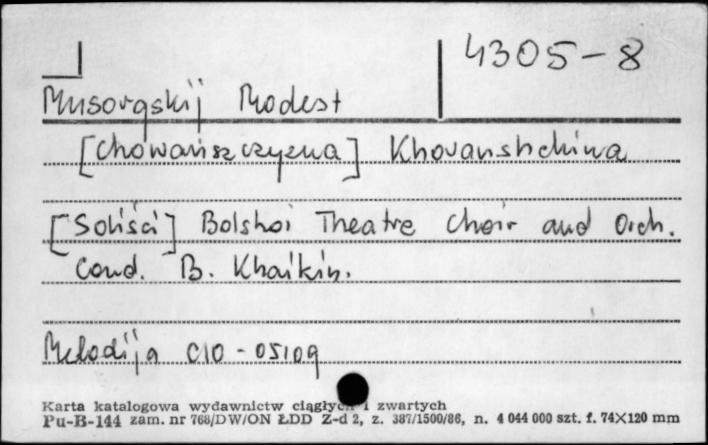 4305-8
Musorgskij Modest
[Chowańszczyzna] Khovanshchina
[Soliści] Bolshoi Theatre Choir and Orch.
Cond. B. Khaikin.
Melodija C10-05109
Karta katalogowa wydawnictw ciągłych i zwartych
Pu-B-144 zam. nr 768/DW/ON ŁDD Z-d 2, z. 387/1500/86, n. 4 044 000 szt. f. 74X120 mm